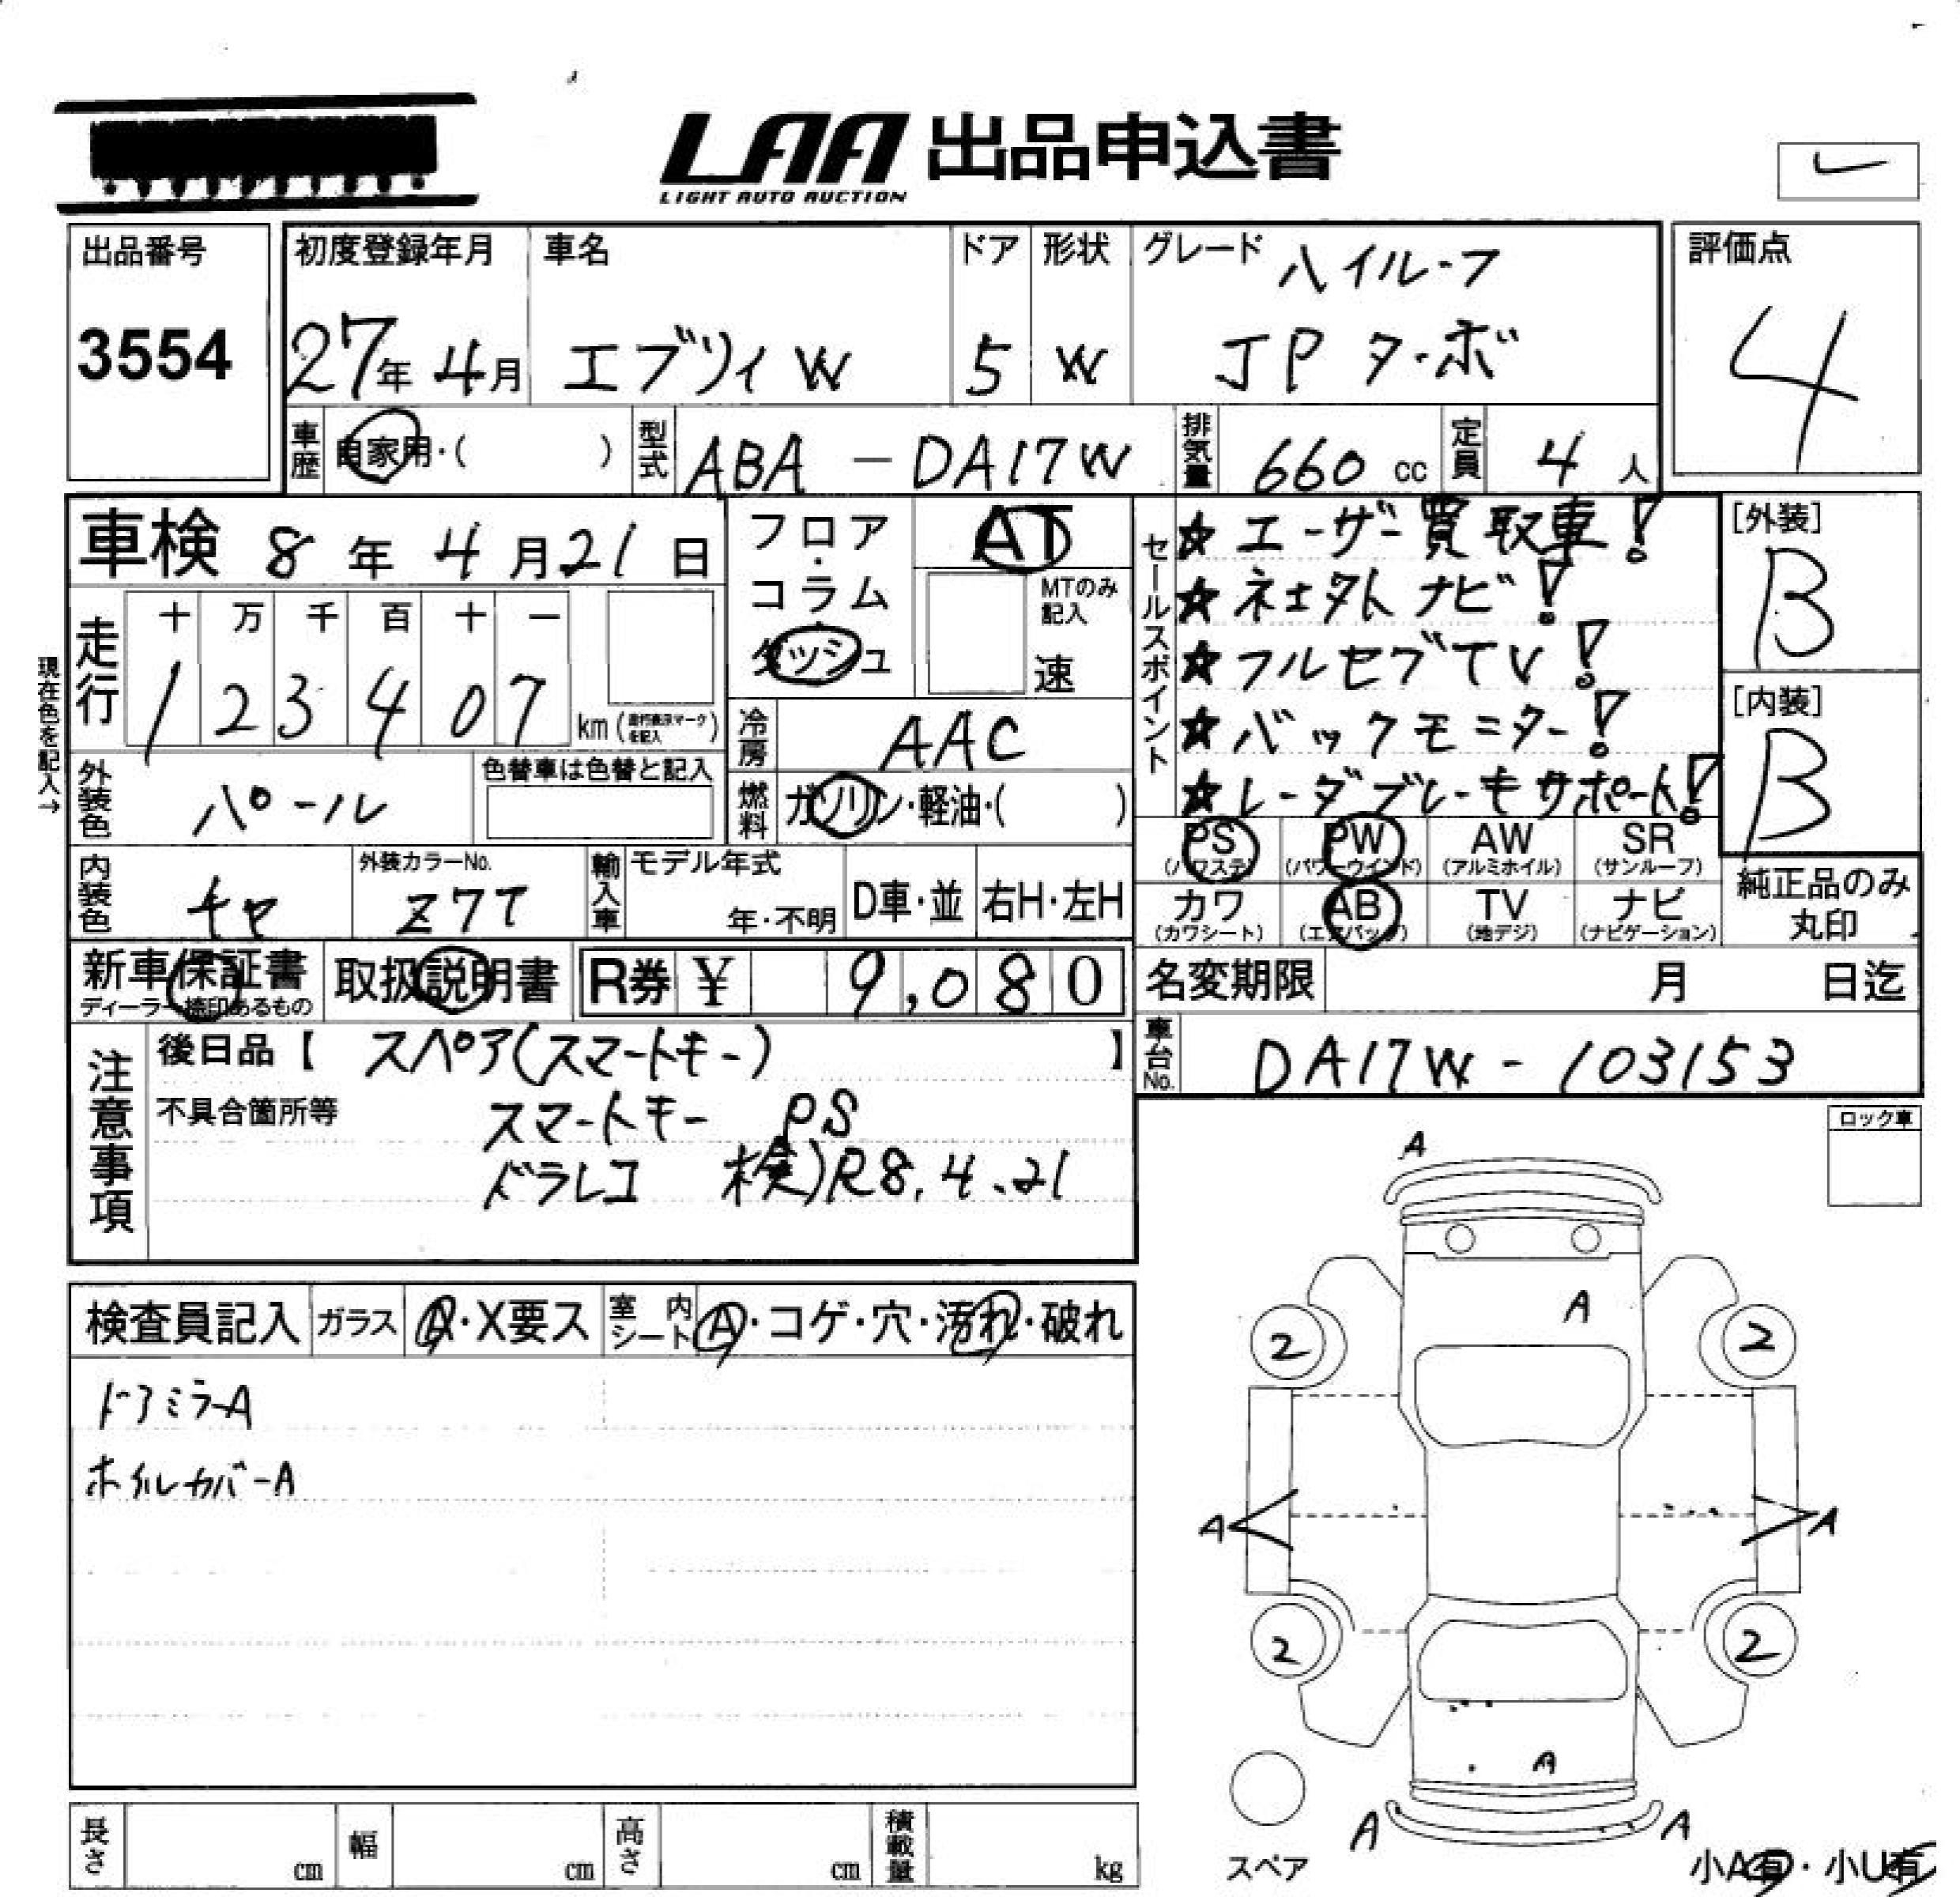 LAA 出品申込書
LIGHT AUTO AUCTION
出品番号
3554
初度登録年月
27年 4月
車名
エブリィ W
ドア
5
形状
W
グレード
ハイルーフ
JP ターボ
評価点
4
車歴 自家用・( )
型式 ABA - DA17W
排気量 660 cc
定員 4 人
車検 8 年 4 月 21 日
フロア・コラム・ダッシュ
AT
MTのみ記入
速
セールスポイント
☆ユーザー買取車!
☆社外ナビ!
☆フルセグTV!
☆バックモニター!
☆レーダブレーキサポート!
[外装]
B
[内装]
B
現在色を記入→
走行
十 万 千 百 十 一
1 2 3 4 0 7
km (走行表示マークを記入)
冷房 AAC
外装色 パール
色替車は色替と記入
燃料 ガソリン・軽油・( )
PS (パワステ)
PW (パワーウインド)
AW (アルミホイル)
SR (サンルーフ)
カワ (カワシート)
AB (エアバッグ)
TV (地デジ)
ナビ (ナビゲーション)
純正品のみ
丸印
内装色 チャ
外装カラーNo.
Z7T
輸入車
モデル年式
年・不明
D車・並
右H・左H
新車保証書
ディーラー捺印あるもの
取扱説明書
R券 ¥ 9,080
名変期限 月 日迄
車台No. DA17W - 103153
注意事項
後日品【 スペア(スマートキー) 】
不具合箇所等
スマートキー PS
ドラレコ 検)R8.4.21
ロック車
検査員記入
ガラス A・X要ス
室内シート A・コゲ・穴・汚れ・破れ
ドアミラーA
ホイルカバーA
A
A
2 2
A A
2 2
A
A A
スペア
小A有・小U有
長さ cm
幅 cm
高さ cm
積載量 kg